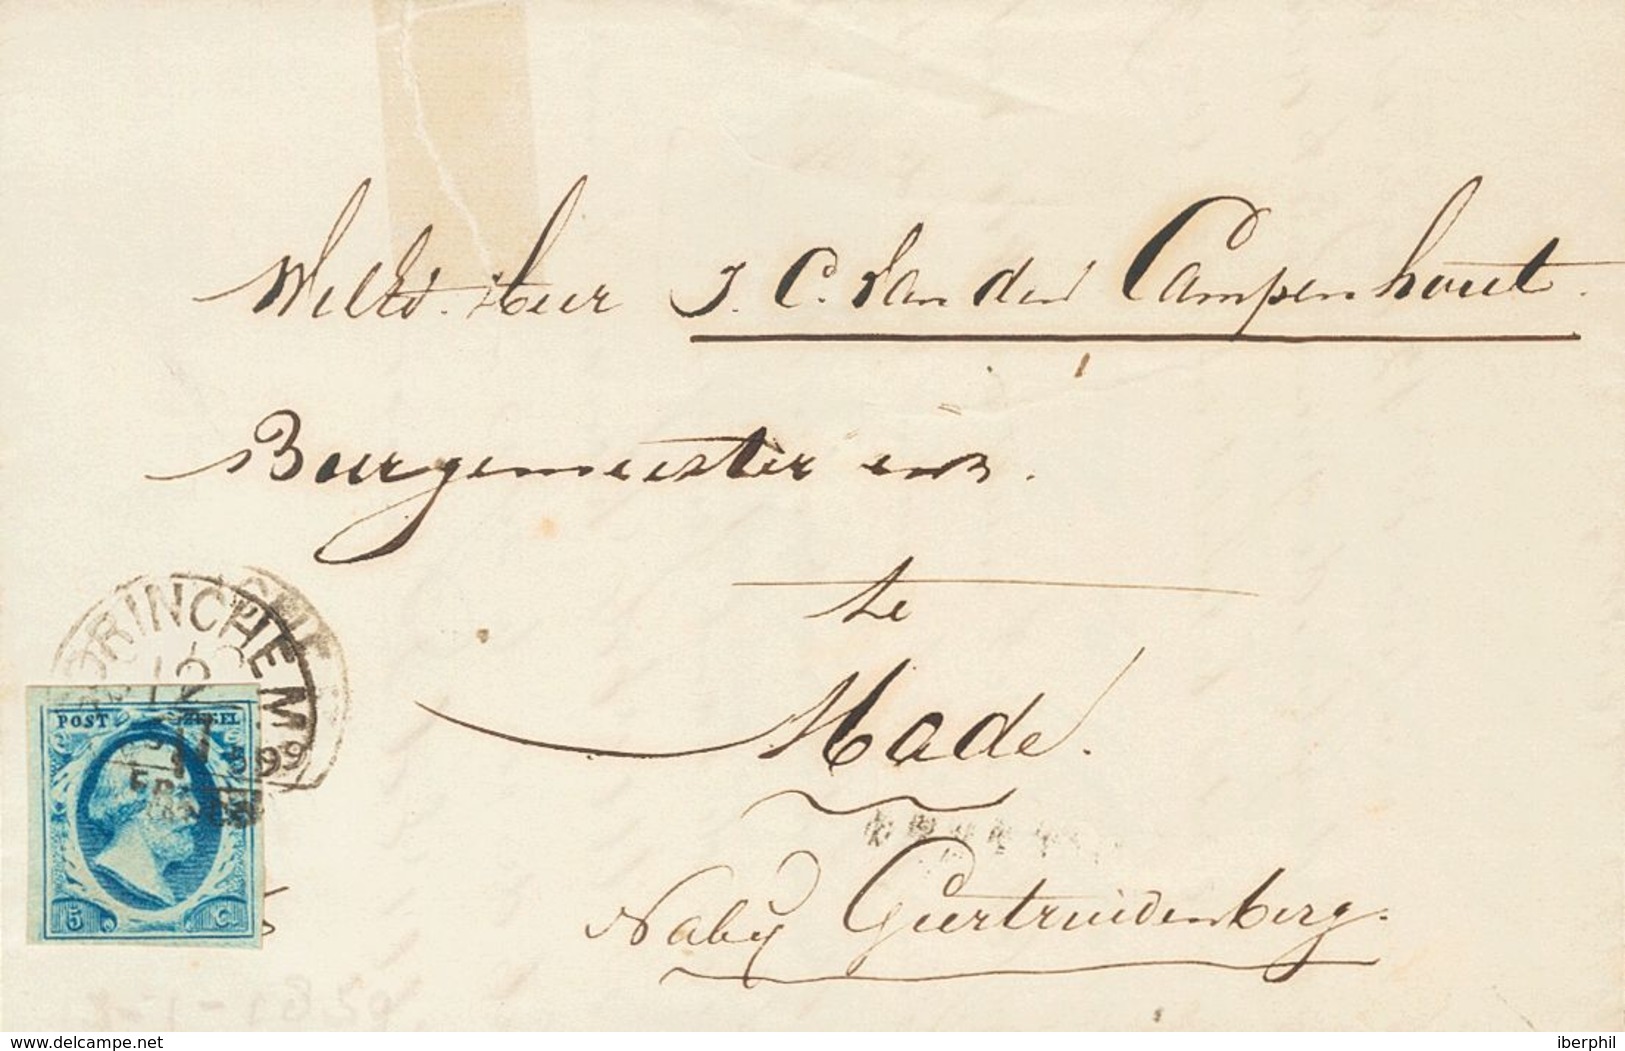 WelEd. Heer J. C. Van den Campenhout.
Burgemeester enz.
te
Made.
Nabij Geertruidenberg.
GORINCHEM
POST ZEGEL
5 C.
5
www.delcampe.net
iberphil